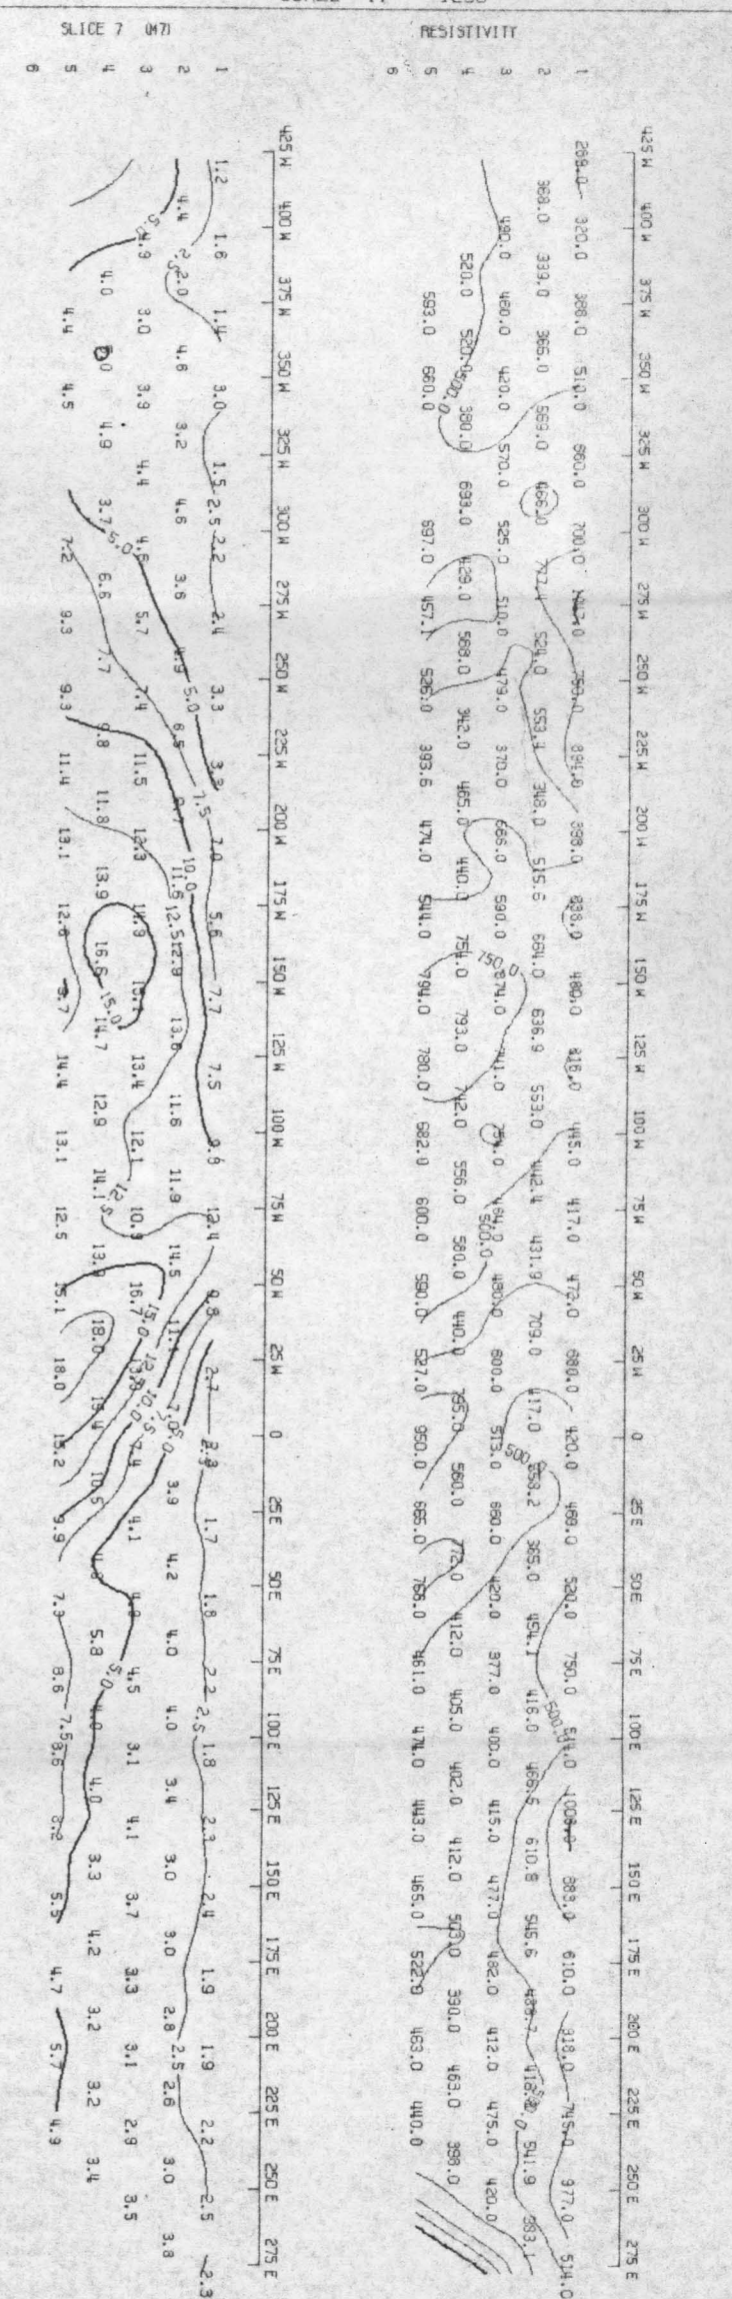 RESISTIVITY
425 W 400 W 375 W 350 W 325 W 300 W 275 W 250 W 225 W 200 W 175 W 150 W 125 W 100 W 75 W 50 W 25 W 0 25 E 50 E 75 E 100 E 125 E 150 E 175 E 200 E 225 E 250 E 275 E
1 268.0 320.0 388.0 510.0 660.0 700.0 894.8 398.0 480.0 445.0 417.0 472.0 680.0 420.0 468.0 520.0 750.0 500.0 514.0 1008.0 883.0 610.0 918.0 745.0 977.0 514.0
2 368.0 333.0 366.0 569.0 466.0 777.1 524.0 553.4 348.0 515.6 684.0 636.9 553.0 442.4 431.9 709.0 417.0 500.0 558.2 365.0 454.1 416.0 466.5 610.8 545.6 485.7 541.9 383.1
3 490.0 460.0 420.0 570.0 525.0 510.0 479.0 370.0 666.0 590.0 750.0 874.0 741.0 754.0 464.0 500.0 480.0 600.0 513.0 660.0 420.0 377.0 400.0 415.0 477.0 482.0 412.0 475.0 420.0
4 520.0 520.0 500.0 380.0 693.0 429.0 568.0 342.0 465.0 440.0 754.0 793.0 742.0 556.0 580.0 440.0 795.0 560.0 772.0 412.0 405.0 402.0 412.0 503.0 390.0 463.0 398.0
5 593.0 660.0 697.0 457.1 526.0 393.6 474.0 544.0 794.0 780.0 682.0 600.0 590.0 527.0 950.0 665.0 766.0 461.0 474.0 443.0 465.0 522.0 463.0 440.0
6
SLICE 7 (M7)
425 W 400 W 375 W 350 W 325 W 300 W 275 W 250 W 225 W 200 W 175 W 150 W 125 W 100 W 75 W 50 W 25 W 0 25 E 50 E 75 E 100 E 125 E 150 E 175 E 200 E 225 E 250 E 275 E
1 1.2 1.6 1.4 3.0 1.5 2.5 2.2 2.4 3.3 3.2 7.5 7.0 5.6 7.7 7.5 9.8 12.4 9.8 2.7 2.3 2.5 1.7 1.8 2.2 2.5 1.8 2.3 2.4 1.9 1.9 2.2 2.5 2.3
2 4.4 2.5 2.0 4.6 3.2 4.6 3.6 4.9 5.0 6.5 9.7 10.0 11.6 12.5 12.9 13.6 11.6 11.9 14.5 11.1 7.0 5.0 3.9 4.2 4.0 4.0 3.4 3.0 3.0 2.8 2.5 2.6 3.0 3.8
3 5.0 4.9 3.0 3.9 4.4 4.6 5.7 7.4 11.5 12.3 14.9 13.4 12.1 10.9 16.7 15.0 7.4 4.1 4.9 4.5 3.1 4.1 3.7 3.3 3.1 2.9 3.5
4 4.0 4.9 3.7 5.0 6.6 7.7 9.8 11.8 13.9 16.6 15.0 14.7 12.9 14.1 12.5 13.9 18.0 15.4 10.5 4.8 5.8 5.0 4.0 4.0 3.3 4.2 3.2 3.2 3.4
5 4.4 4.5 7.2 9.3 9.3 11.4 13.1 12.6 9.7 14.4 13.1 12.5 15.1 18.0 15.2 9.9 7.9 8.6 7.5 8.6 8.2 5.5 4.7 5.7 4.9
6